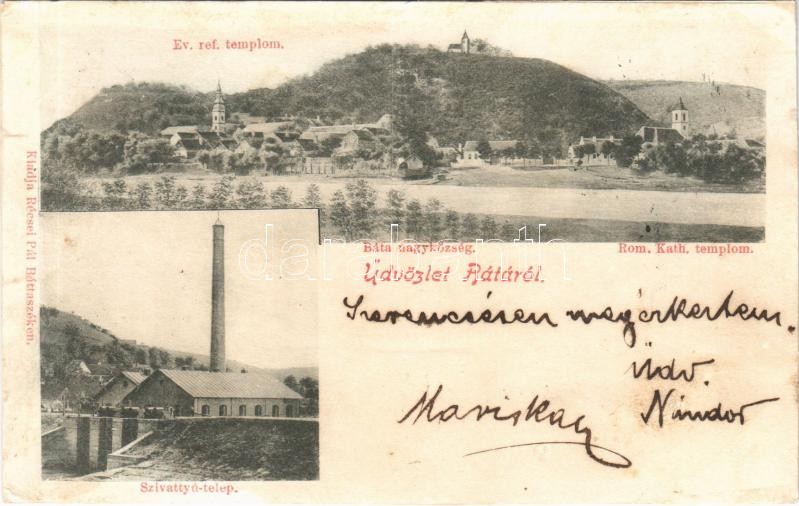 Ev. ref. templom.
Báta nagyközség.
Rom. Kath. templom.
Üdvözlet Bátáról.
Kiadja Récsei Pál Báttaszéken.
Szerencsésen megérkeztem.
Üdv.
Nándor
Szivattyú-telep.
darabanth